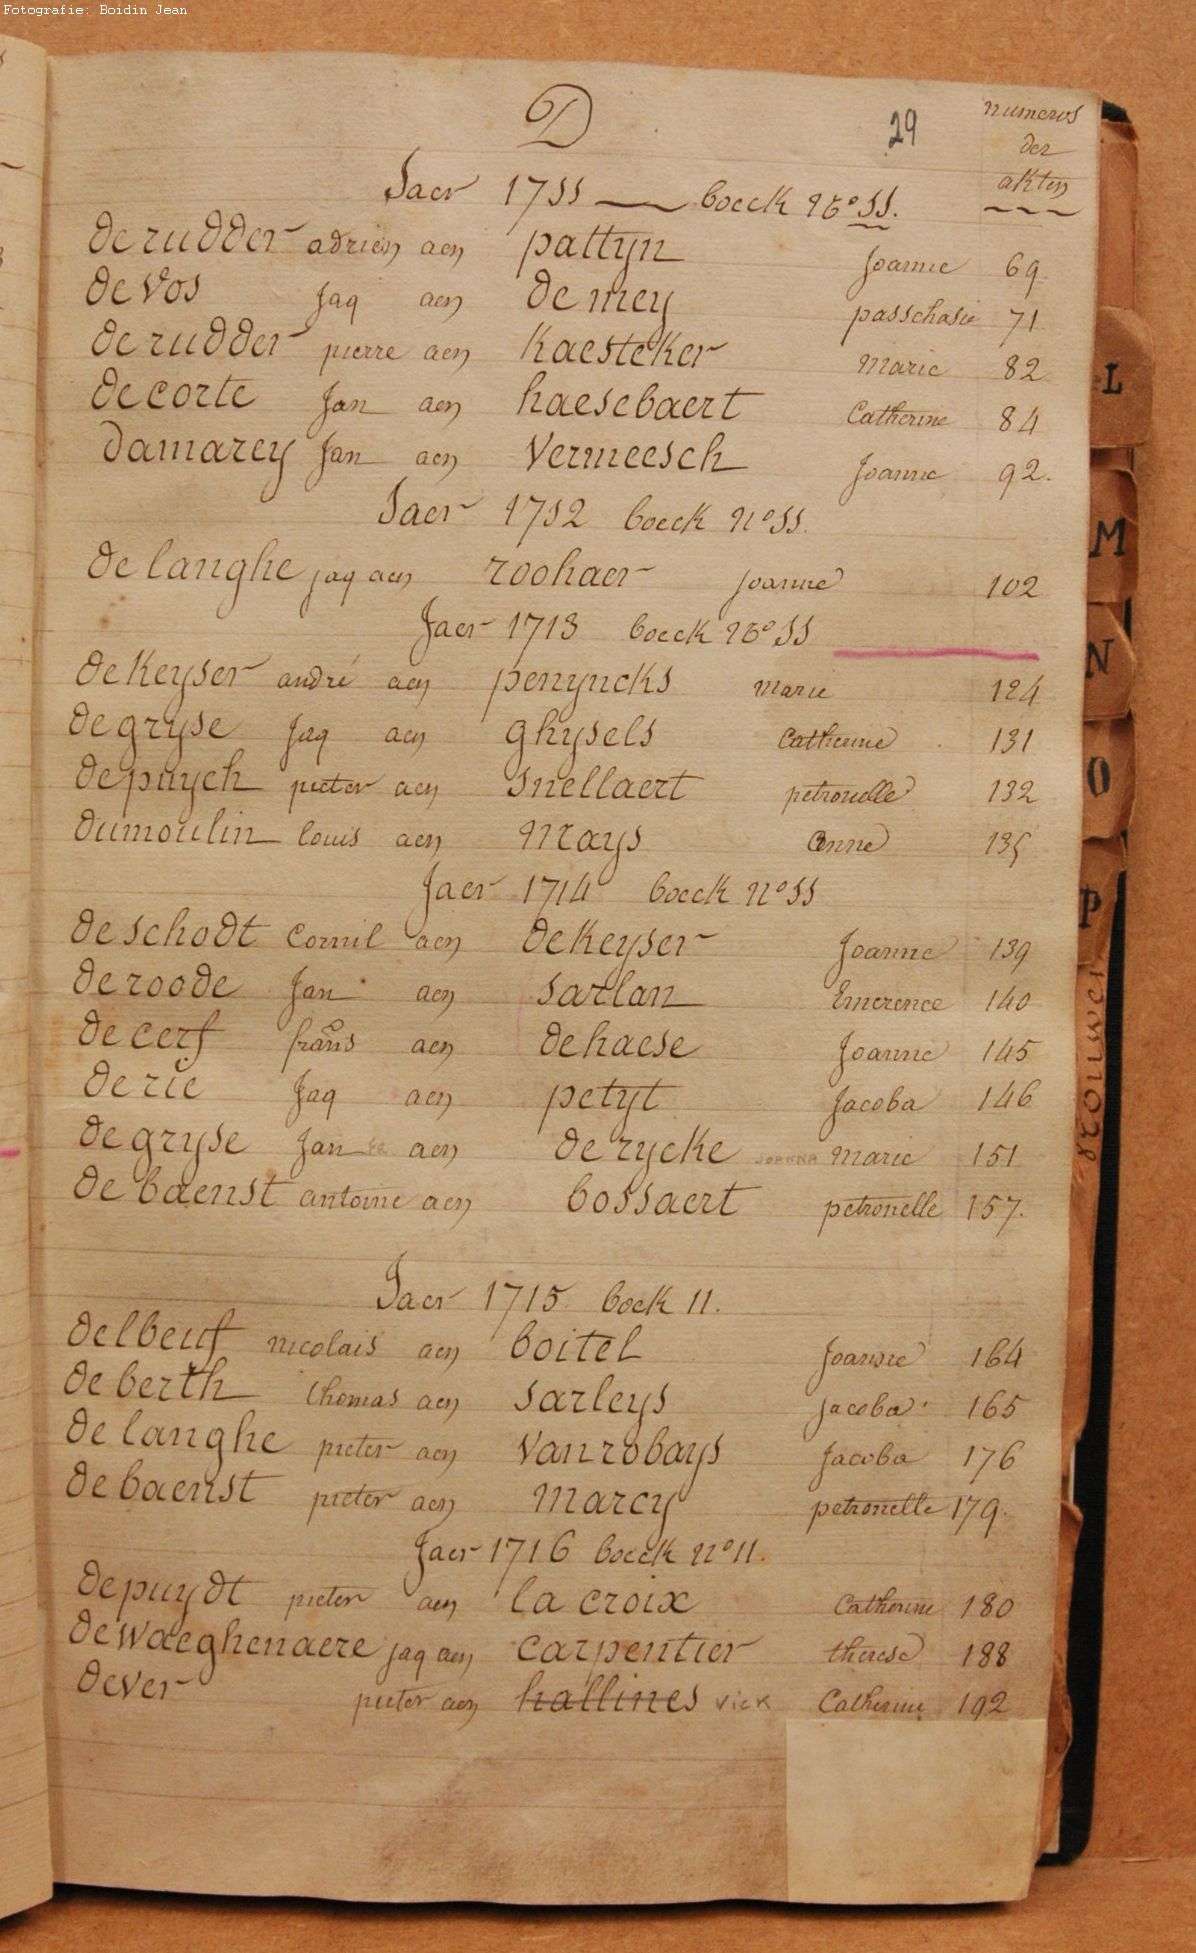 Fotografie: Boidin Jean
D
29
numeros
der
akten
Jaer 1711 boeck No 11.
de rudder adrien aen pattyn Joanne 69.
de Vos Jaq aen de mey passchasie 71
de rudder pierre aen Kaesteker Marie 82
de corte Jan aen haesebaert Catherine 84
Damarey Jan aen Vermeesch Joanne 92.
Jaer 1712 boeck No 11
de langhe jaq aen roohaer joanne 102
Jaer 1713 boeck No 11
de Keyser andré aen penyncks marie 124
de gryse Jaq aen ghysels Catherine 131
de puych pieter aen Snellaert petronelle 132
dumoulin louis aen Mays anne 135
Jaer 1714 boeck No 11
de Schodt Cornil aen de Keyser Joanne 139
de roode Jan aen Sarlan Emerence 140
de cerf frans aen de haese Joanne 145
de rie Jaq aen petyt Jacoba 146
de gryse Jan aen de rycke Joanna Marie 151
de baenst antoine aen bossaert petronelle 157.
Jaer 1715 boek 11.
delbeuf nicolais aen boitel Joanne 164
de berth thomas aen Sarleys jacoba 165
de langhe pieter aen Van robays Jacoba 176
de baenst pieter aen marcy petronelle 179.
Jaer 1716 boeck No 11.
de puydt pieter aen la croix Catherine 180
de Waeghenaere jaq aen Carpentier therese 188
dever pieter aen hallines VICK Catherine 192
L
M
N
O
P